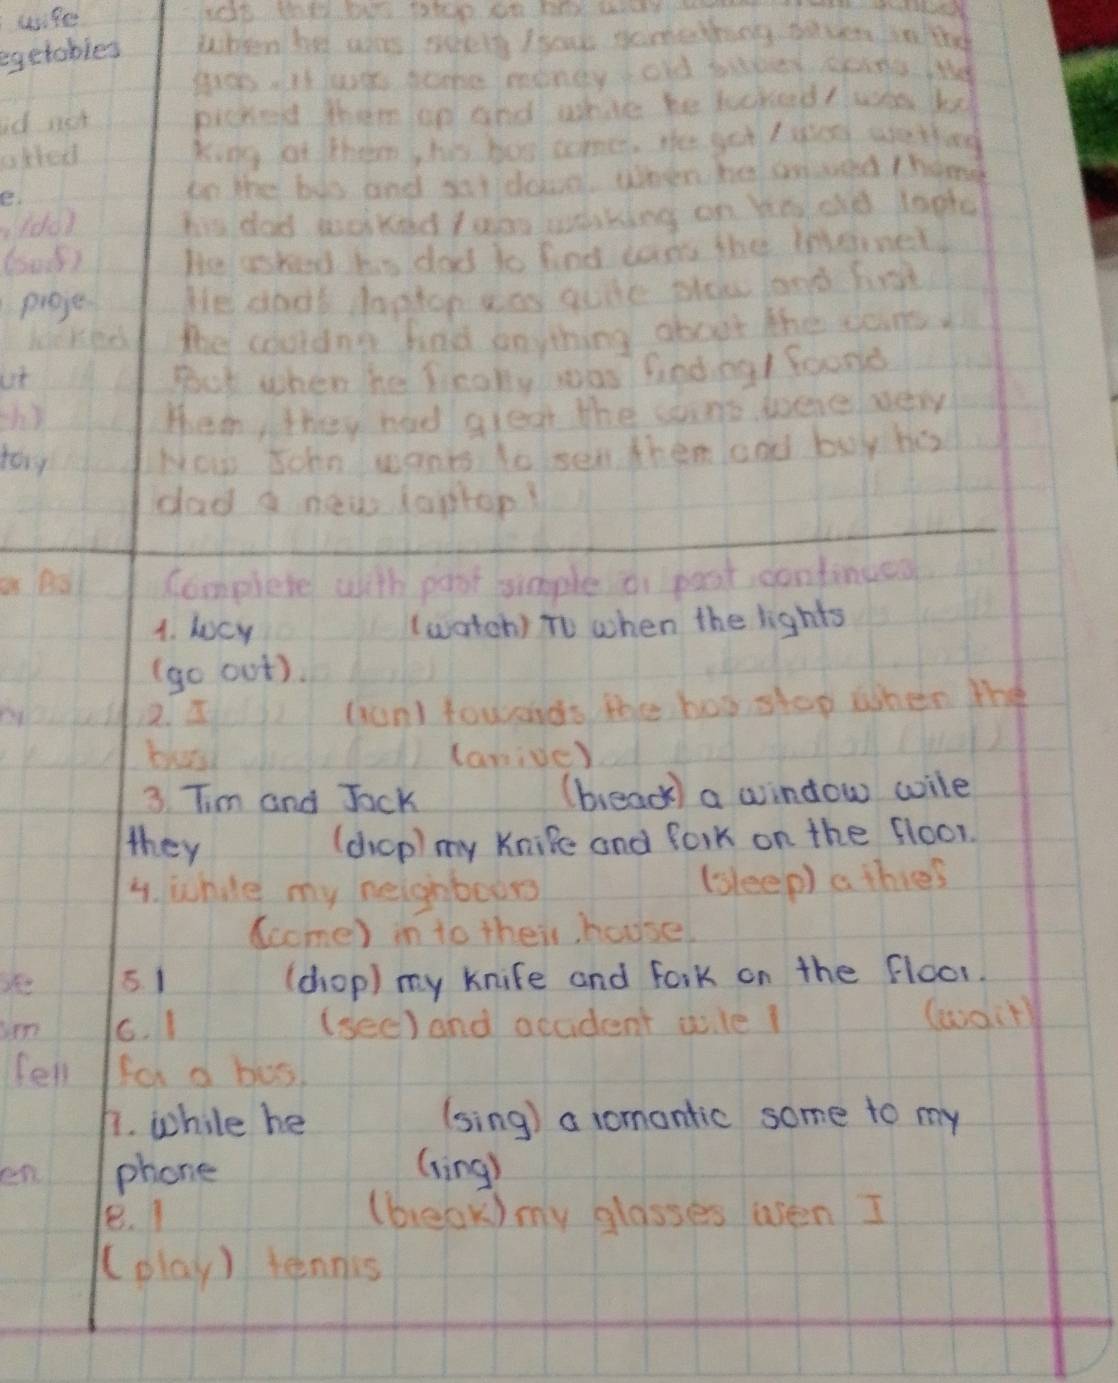 wife
egetables
id not
e.
(do)
proje
ut
tory
when he was seeing / saw something silver in the
It was some money old silver coins. He
picked them up and while he looked / was loo
king at them, his bus come. He got / was getting
on the bus and sat down. When he arrived / home
his dad worked / was working on his old lapto
He asked his dad to find coins the Internet.
He dad's laptop was quite slow and first
the couldn't find anything about the coins.
But when he finally was finding / found
them, they had great the coins were very
Now John wants to sell them and buy his
dad a new laptop!
Complete with past simple or past continues
1. Lucy (watch) TV when the lights
(go out).
2. I (run) towards the bus stop when the
bus (arrive)
3. Tim and Jack (breack) a window wile
they (drop) my Knife and fork on the floor.
4. while my neighboors (sleep) a thief
(come) in to their house.
5. I (drop) my Knife and fork on the floor.
6. I (see) and accident wile I (wait)
fell for a bus.
7. While he (sing) a romantic some to my
en phone (ring)
8. I (break) my glasses wen I
(play) tennis